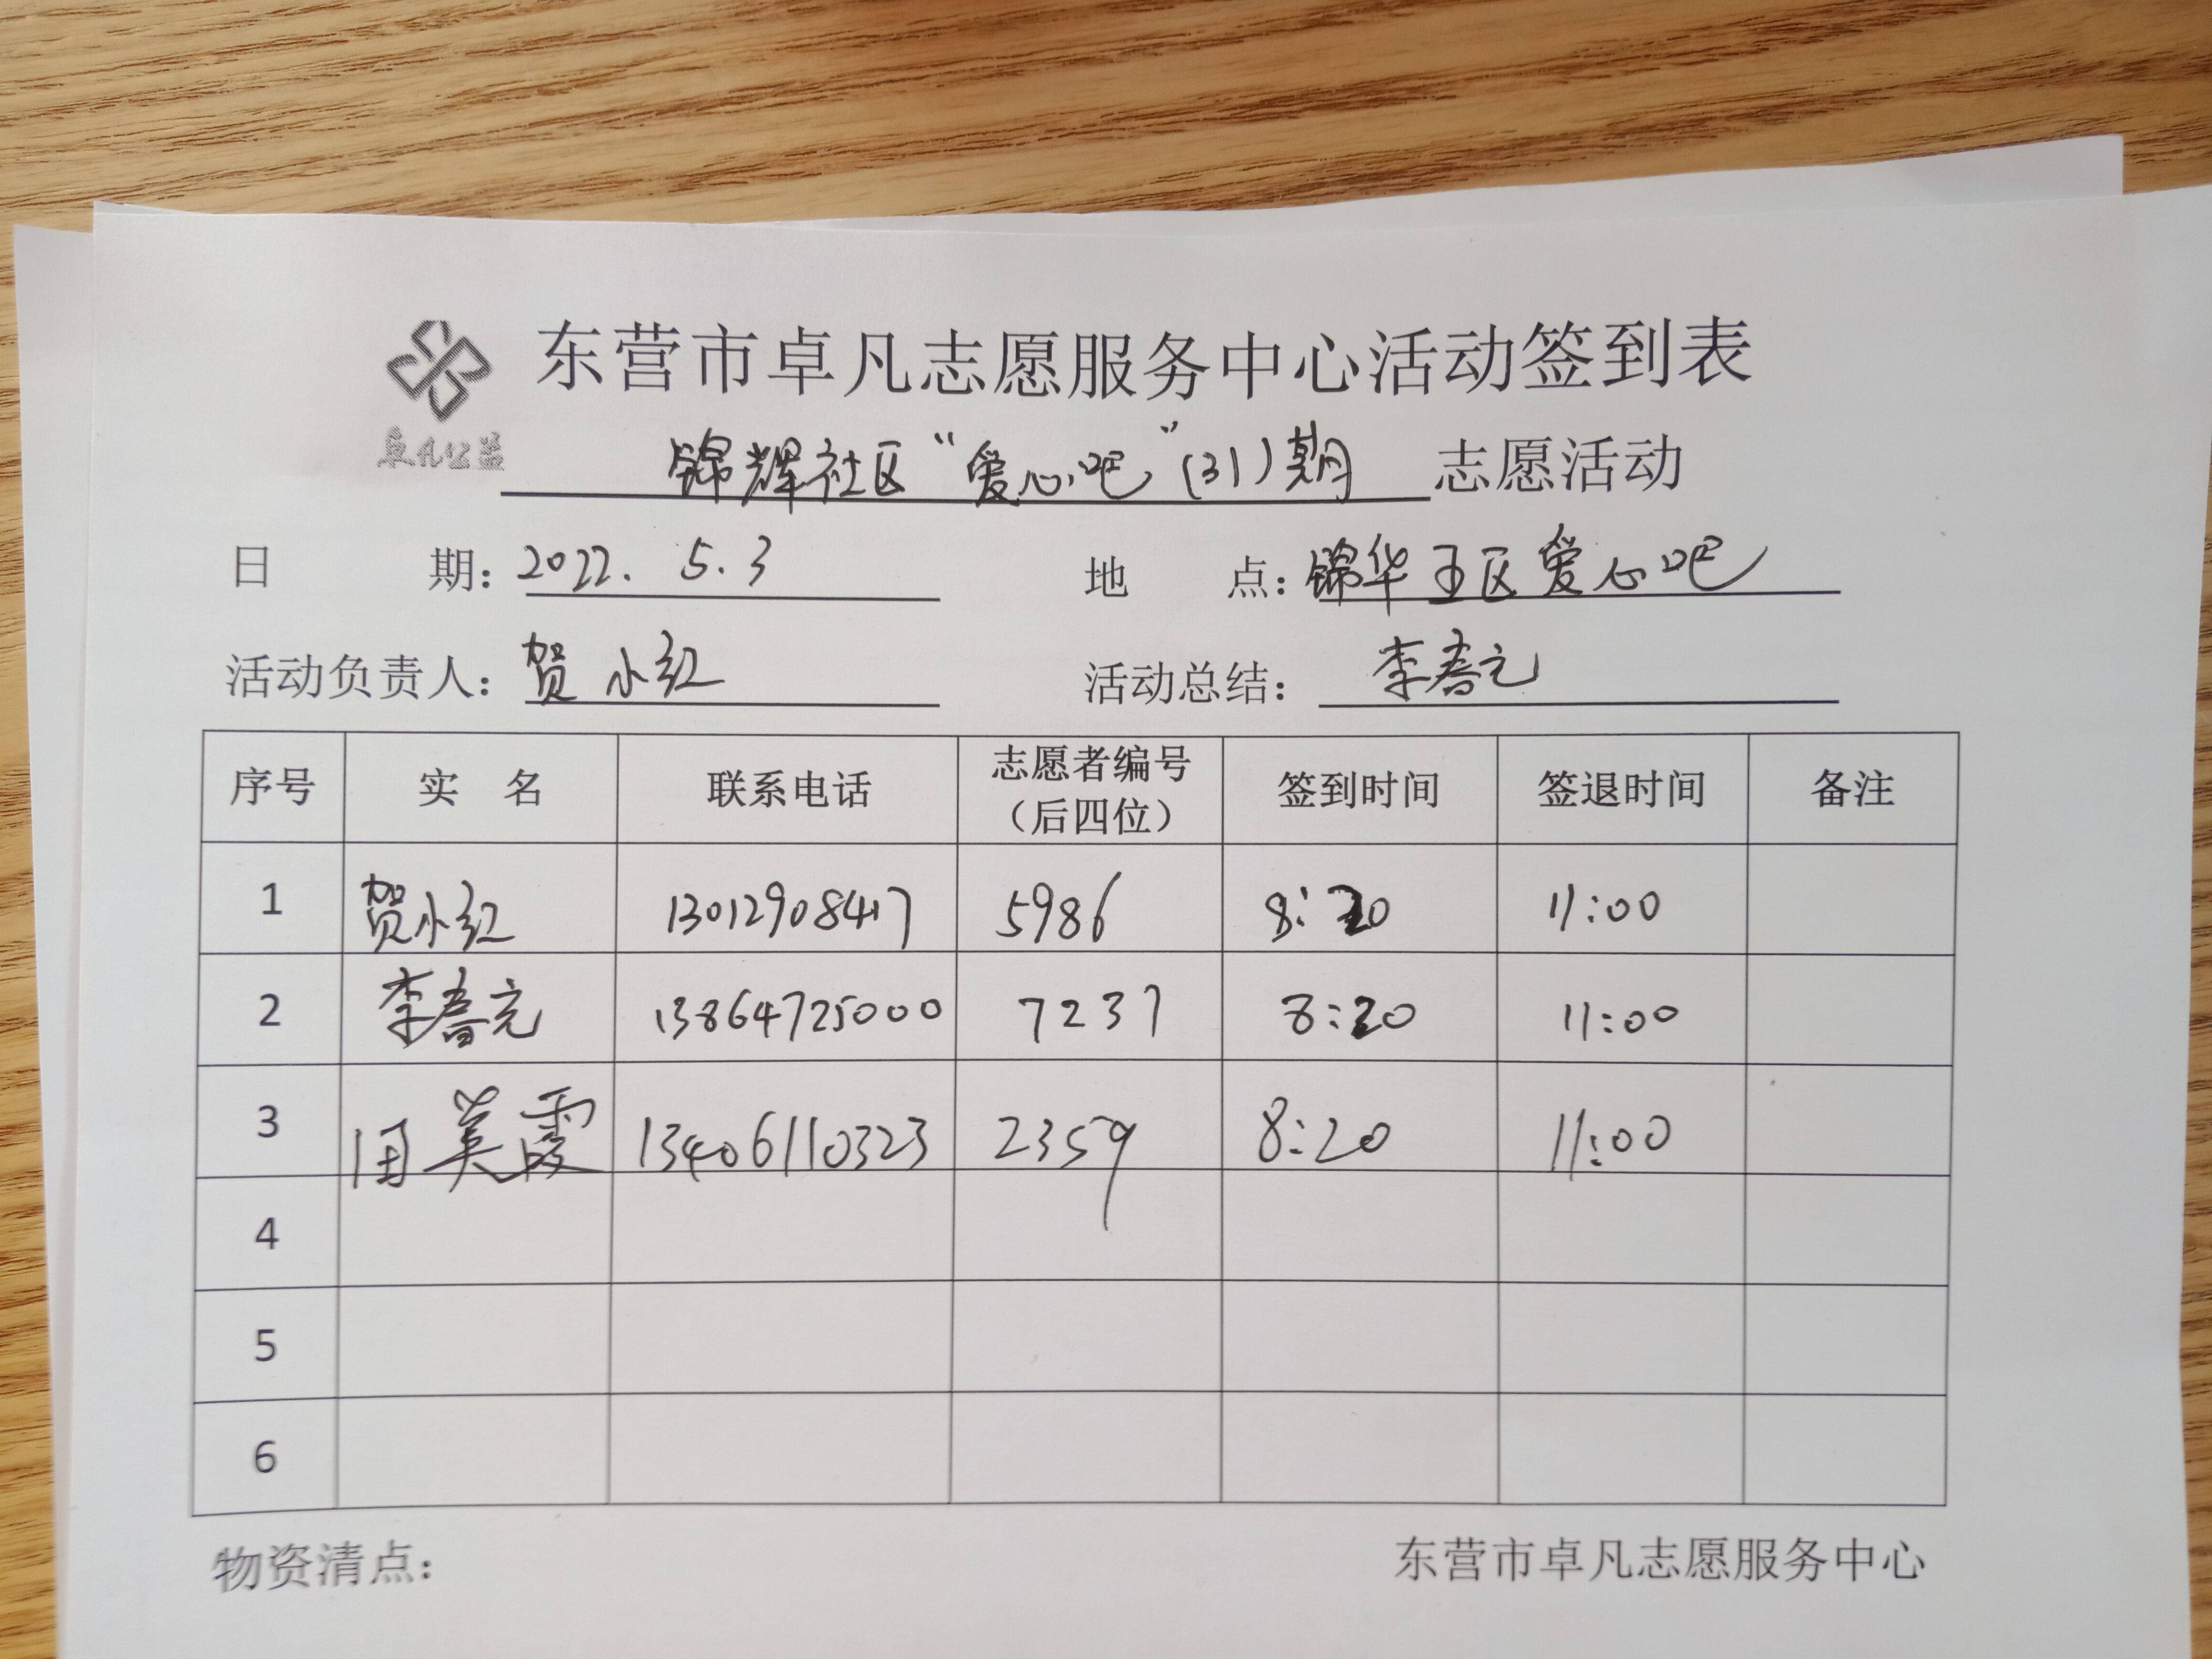 东营市卓凡志愿服务中心活动签到表
卓凡公益
锦辉社区“爱心吧”(31)期 志愿活动
日 期: 2022. 5.3 地 点: 锦华五区爱心吧
活动负责人: 贺小红 活动总结: 李春元
序号 实 名 联系电话 志愿者编号(后四位) 签到时间 签退时间 备注
1 贺小红 13012908417 5986 8:20 11:00
2 李春元 13864725000 7237 8:20 11:00
3 美霞 13406110323 2359 8:20 11:00
4
5
6
物资清点: 东营市卓凡志愿服务中心